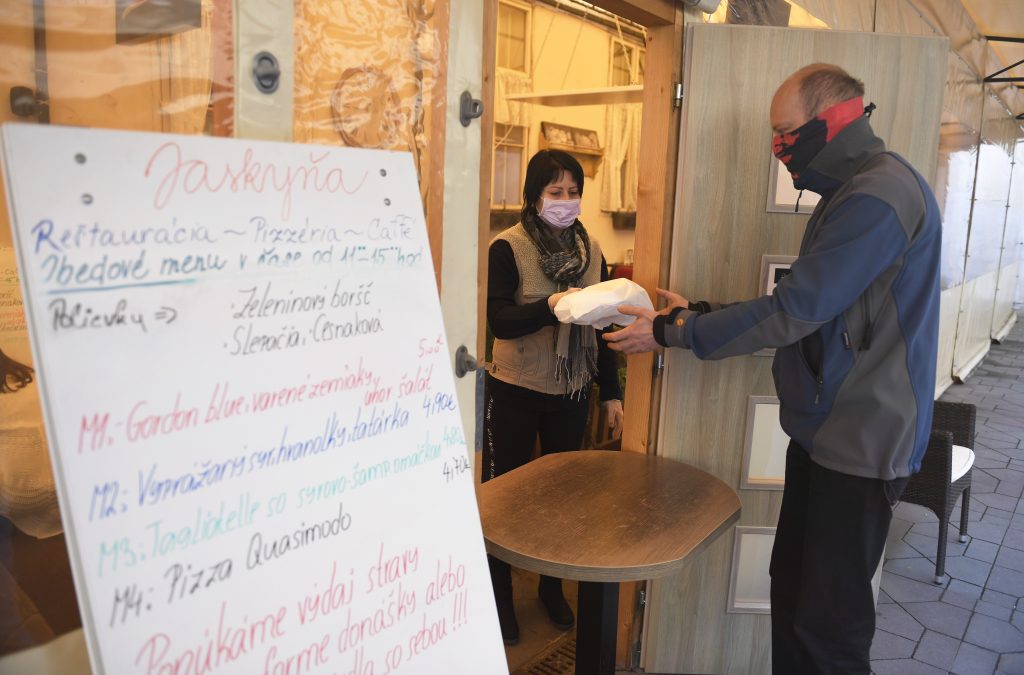 Jaskyňa
Reštaurácia ~ Pizzéria ~ Caffé
Obedové menu v čase od 11⁰⁰-15⁰⁰ hod
Polievky => · Zeleninový boršč
· Slepačia, Cesnaková
5,00€
M1.- Gordon blue, varené zemiaky, uhor. šalát
M2: Vyprážaný syr, hranolky, tatárka 4,90€
M3: Tagliatelle so syrovo-šamp. omáčkou 4,80€
M4: Pizza Quasimodo 4,70€
Ponúkame výdaj stravy
forme donášky alebo
so sebou !!!